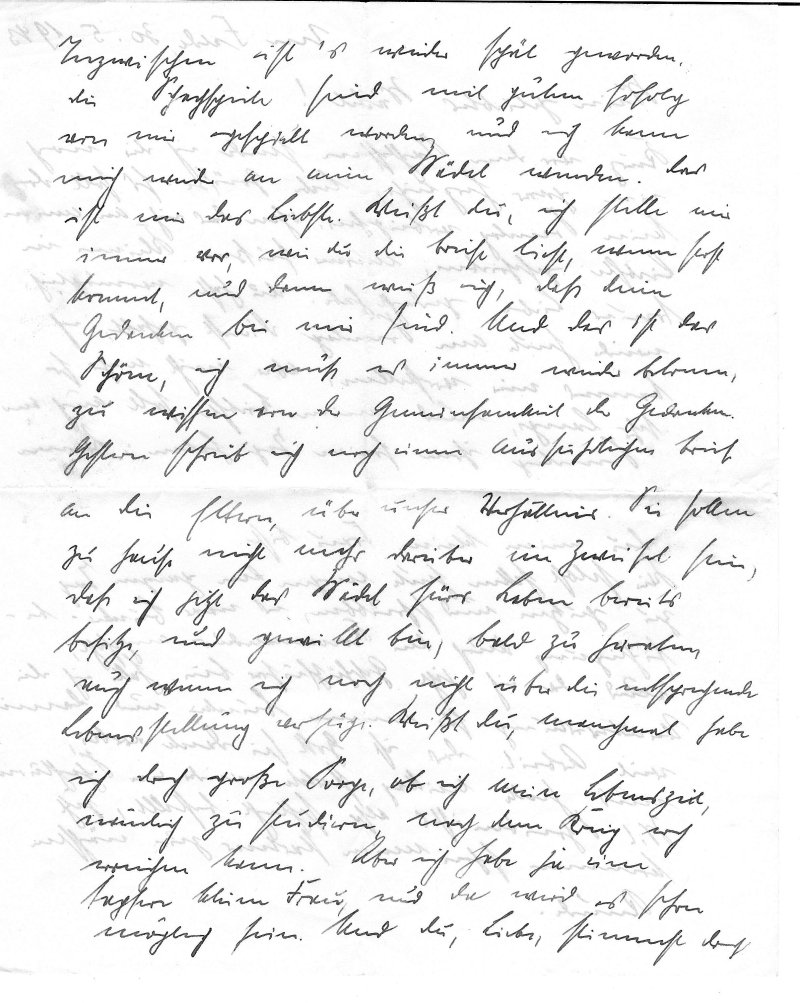 Inzwischen ist 's wieder spät geworden,
die Schachspiele sind mit gutem Erfolg
von mir gespielt worden, und ich kann
mich wieder an mein Mädel wenden. Das
ist mir das Liebste. Weißt du, ich stelle mir
immer vor, wie du die Briefe liest, wenn Post
kommt, und dann weiß ich, daß deine
Gedanken bei mir sind. Und das ist das
Schöne, ich muß es immer wieder betonen,
zu wissen von der Gemeinsamkeit der Gedanken.
Gestern schrieb ich noch einen ausführlichen Brief
an die Eltern, über unser Verhältnis. Sie sollen
zu Hause nicht mehr darüber im Zweifel sein,
daß ich jetzt das Mädel fürs Leben bereits
besitze, und gewillt bin, bald zu heiraten,
auch wenn ich noch nicht über die entsprechende
Lebensstellung verfüge. Weißt du, manchmal habe
ich doch große Sorge, ob ich mein Lebensziel,
nämlich zu studieren, nach dem Krieg noch
erreichen kann. Aber ich habe ja eine
tapfere kleine Frau, und da wird es schon
möglich sein. Und du, Liebe, stimmst doch